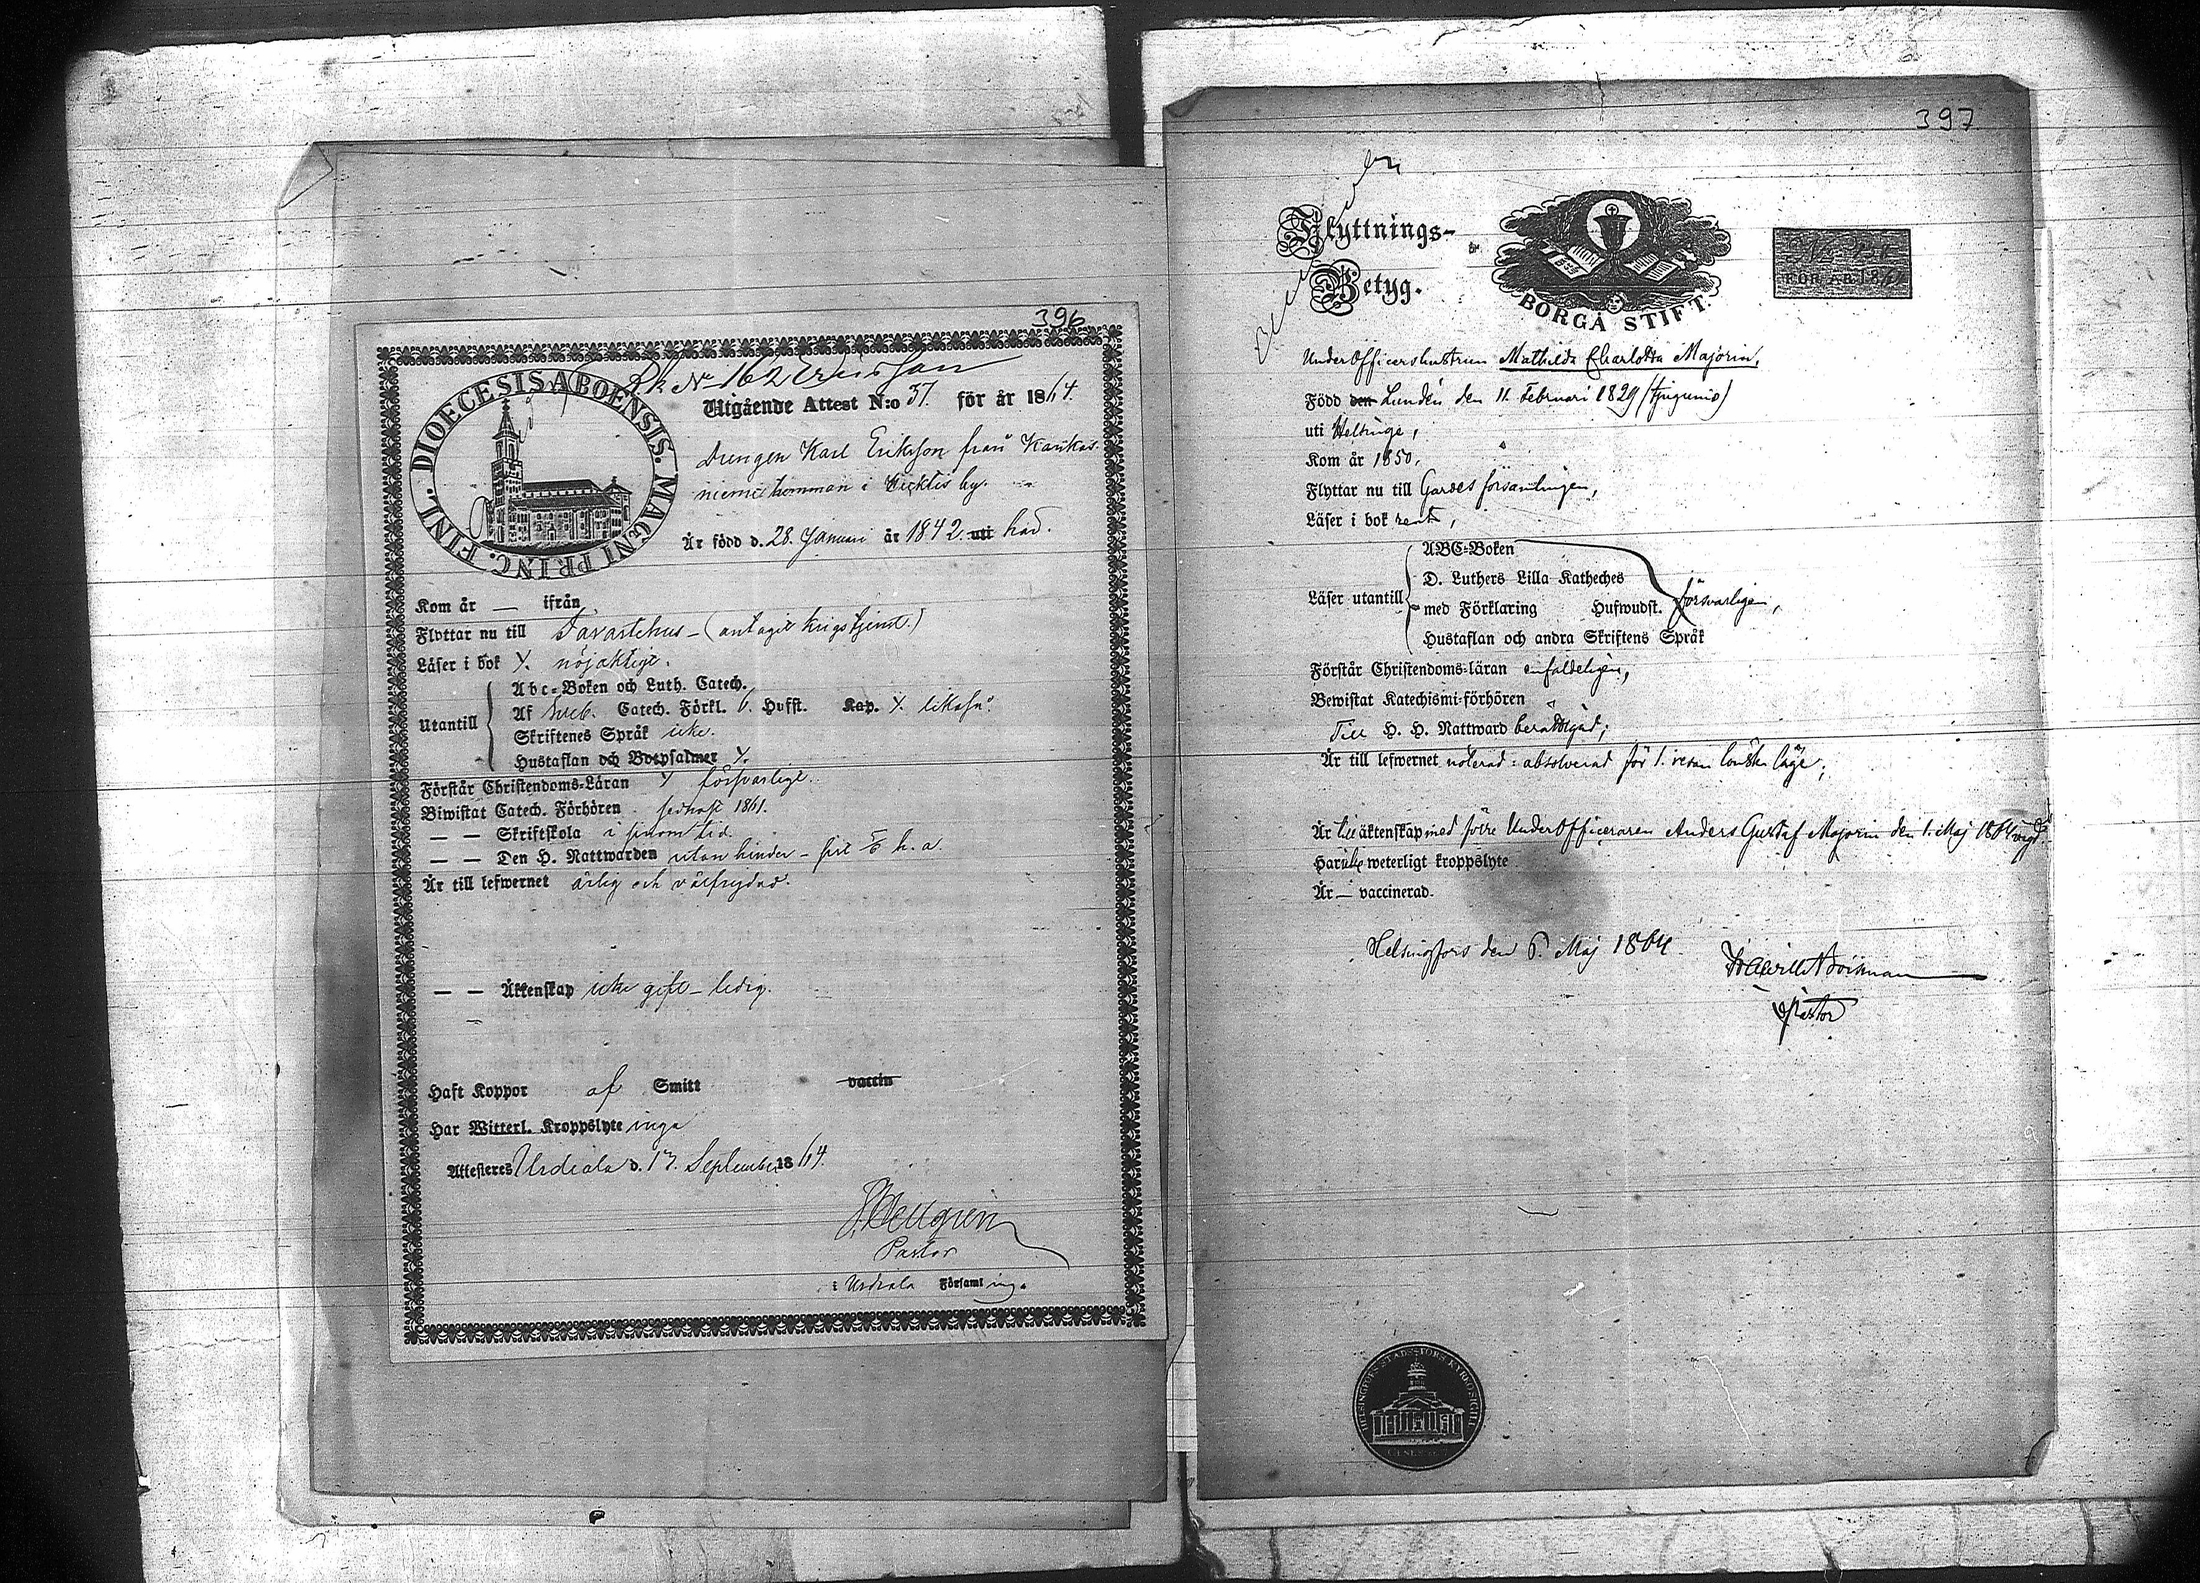 396
Rk No 162 Ericsson
DIOECESIS ABOENSIS. MAGNI PRINC. FINL.
Utgående Attest N:o 37. för år 1864.
Drengen Karl Eriksson från Kankas-
niemi hemman i by.
Är född d. 28 Januari år 1842. uti här.
Kom år — ifrån
Flyttar nu till Tavastehus – (antagit krigstjenst.)
Läser i bok nöjaktigt.
Abc-Boken och Luth. Catech.
Utantill
Af Sveb. Catech. Förkl. 6. Hufst. Kap. likaså.
Skriftenes Språk icke.
Hustaflan och Botpsalmer
Förstår Christendoms-Läran försvarligt.
Biwistat Catech. Förhören sednast 1861.
— — Skriftskola i sinom tid.
— — Den H. Nattwarden utan hinder – h. a.
Är till lefwernet ärlig och välfrejdad.
— — Äktenskap icke gift – ledig.
Haft Koppor af Smitt vaccin
Har Witterl. Kroppslyte inga
Attesteres Urdiala d. 17. September 1864.
Pastor
i Urdiala Församling.
397
Flyttnings-
Betyg.
BORGÅ STIFT.
FÖR ÅR 18
UnderOfficershustrun Mathilda Charlotta Majorin,
Född den Lundén den 11. Februari 1829 (tjugunio)
uti Helsinge,
Kom år 1850,
Flyttar nu till Gardesförsamlingen,
Läser i bok rent,
ABC-Boken
D. Luthers Lilla Katheches
Läser utantill
med Förklaring Hufwudst. försvarligen,
Hustaflan och andra Skriftens Språk
Förstår Christendoms-läran enfaldeligen,
Bewistat Katechismi-förhören
Till H. H. Nattward berättigad;
Är till lefwernet noterad: absolverad för 1. resan lönska läge;
Är till äktenskap med förre UnderOfficeraren Anders Gustaf Majorin den 1. Maj 1864 vigd.
Har icke weterligt kroppslyte
Är — vaccinerad.
Helsingfors den 6. Maj 1864.
Pastor